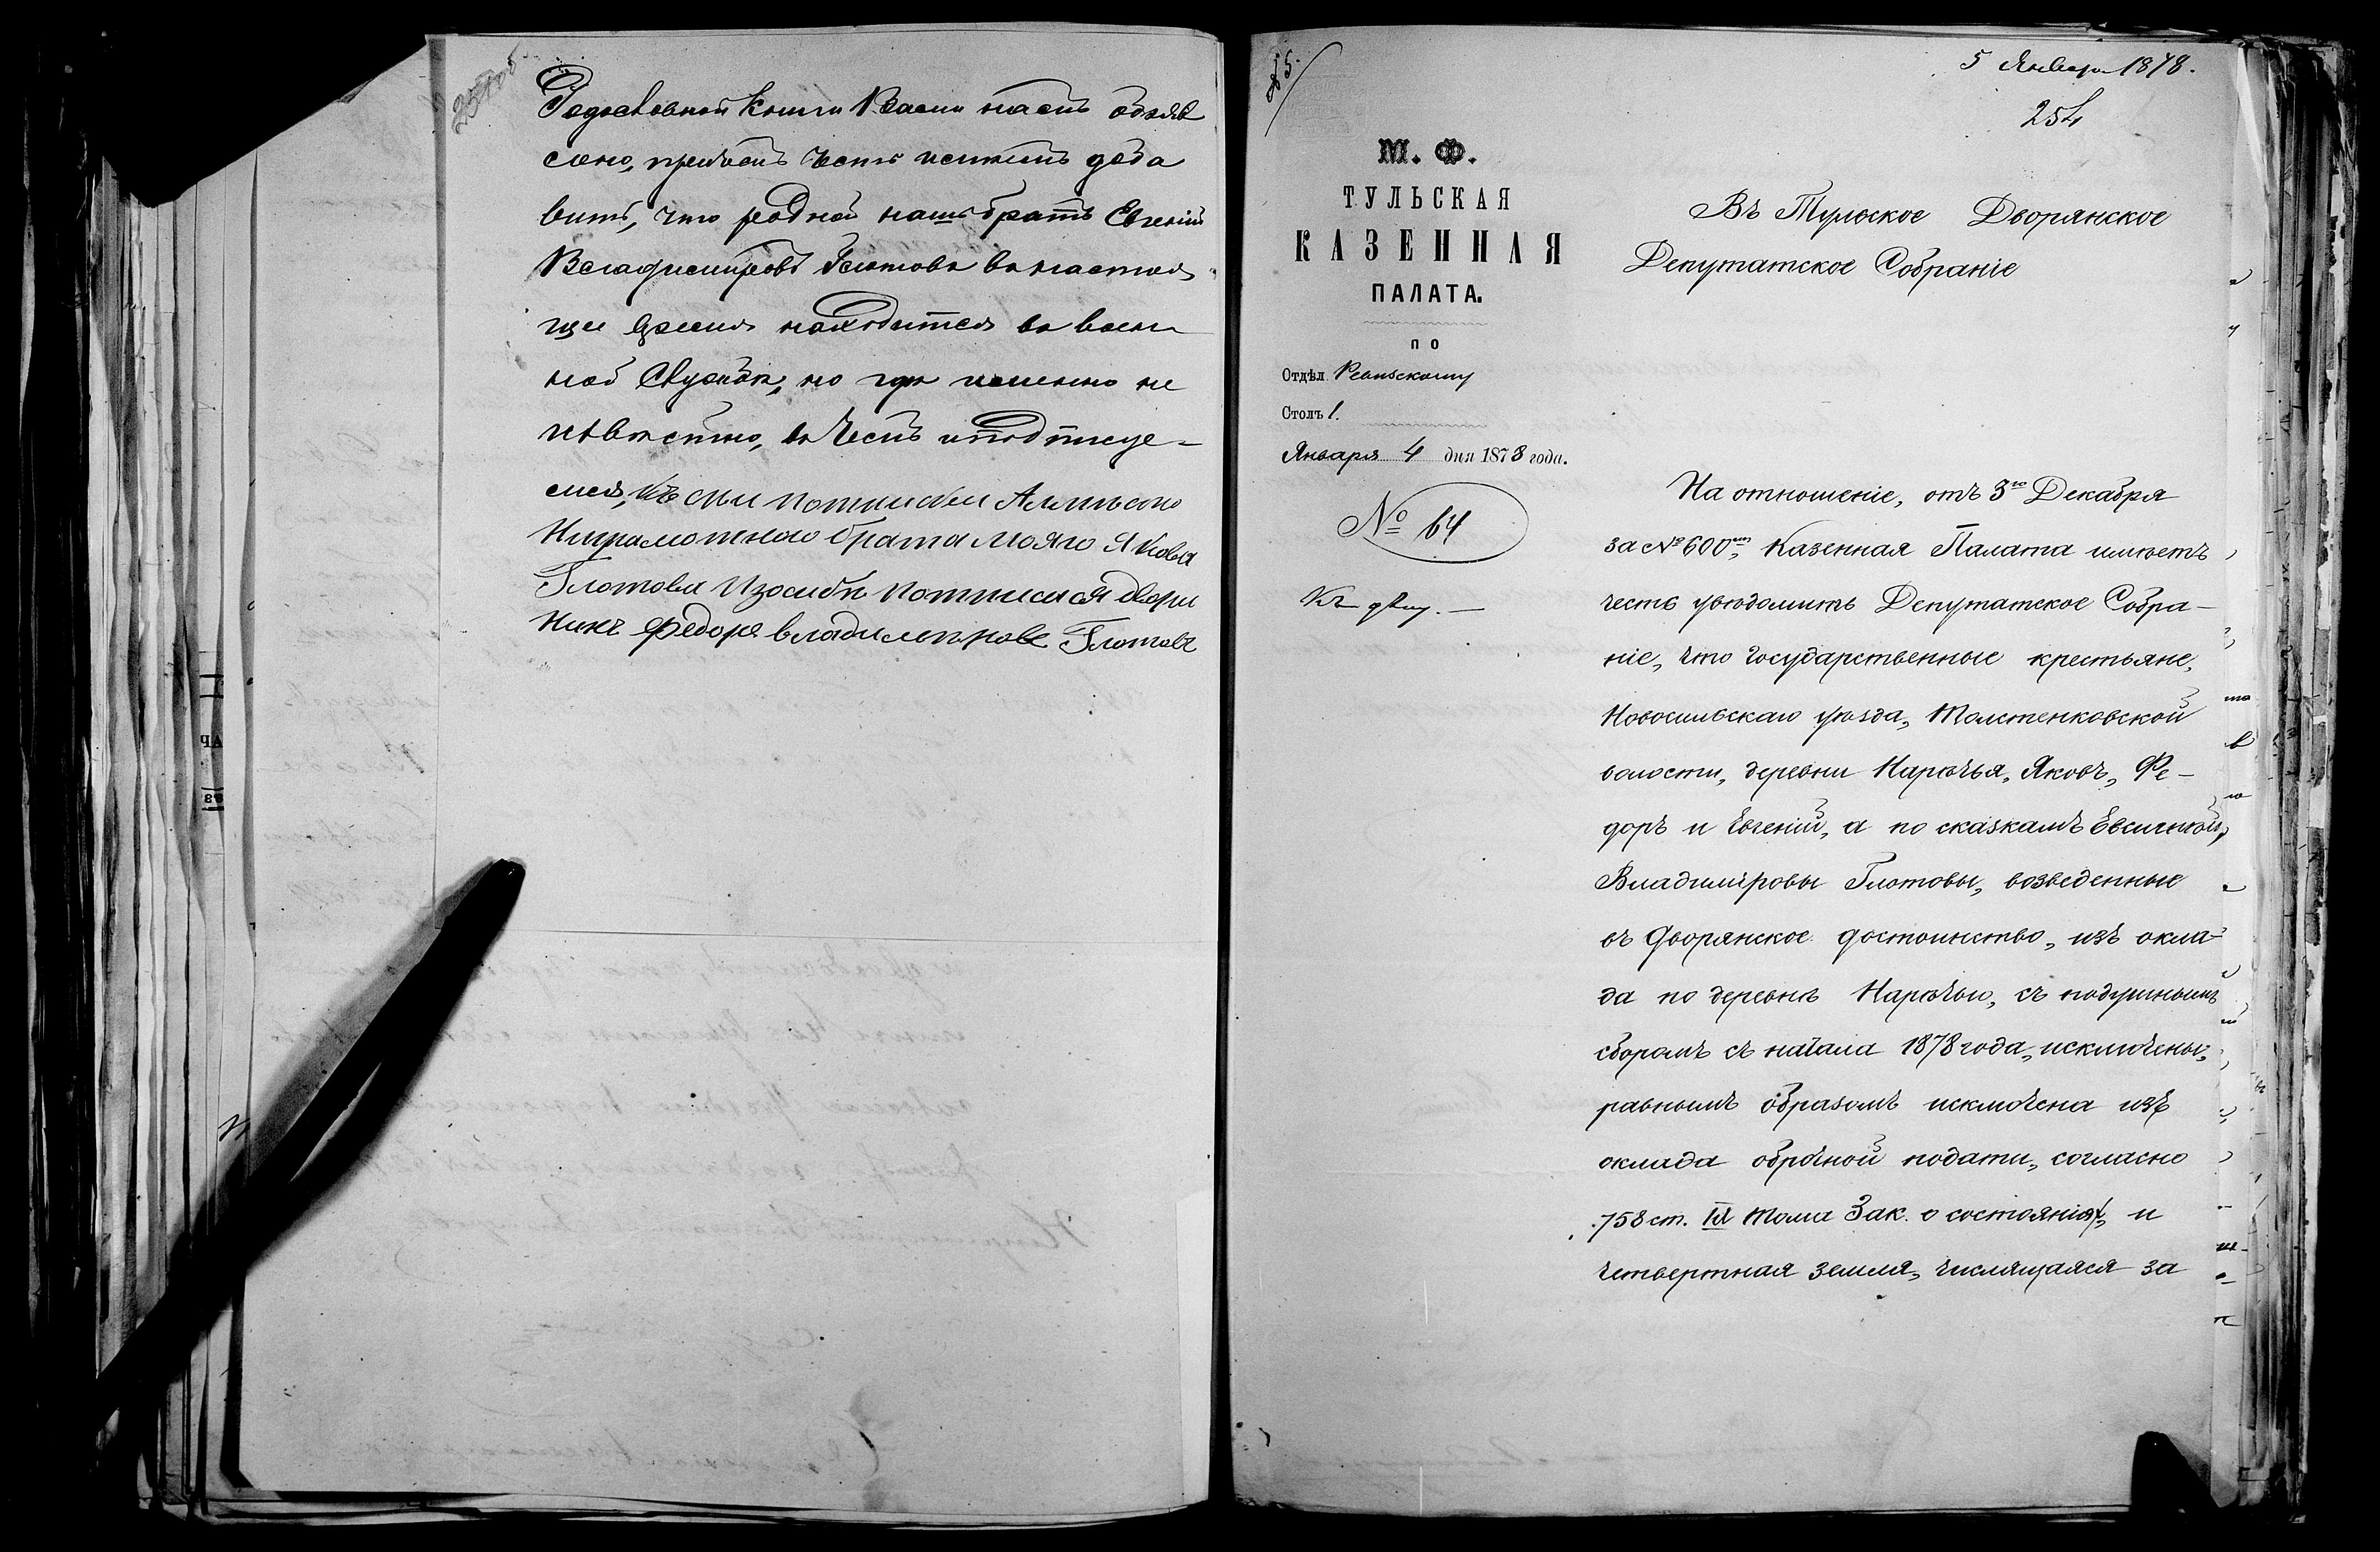 Родословной книги Васъ насъ объяв
лено, при чемъ честь имѣемъ доба
вить, что родной нашъ братъ Евгеній
Владиміровъ Глотовъ в настоя
щее время находится во воен
ной Службѣ, но где именно не
извѣстно, в чемъ и подписуе-
мся, Къ сей потписки Алпѣсто
Ниграмотнаго брата мояго Якова
Глотова Изасибѣ потписался двори
Нинъ Федоръ владимировъ Глотовъ
25.
5 Января 1878.
254
М. Ф.
ТУЛЬСКАЯ
КАЗЕННАЯ
ПАЛАТА.
по
Отдѣл Ревизскому
Столъ 1.
Января 4 дня 1878 года.
№ 64
Къ дѣлу. —
Въ Тульское Дворянское
Депутатское Собраніе
На отношеніе, отъ 3го Декабря
за № 600, Казенная Палата имѣетъ
честь увѣдомить Депутатское Собра-
ніе, что государственные крестьяне,
Новосильскаго уѣзда, Толстенковской
волости, деревни Нарѣчья, Яковъ, Фе-
доръ и Евгеній, а по сказкамъ Евсигней,
Владиміровы Глотовы, возведенные
въ Дворянское достоинство, изъ окла-
да по деревнѣ Нарѣчьи, съ подушнымъ
сборомъ съ начала 1878 года, исключены,
равнымъ образомъ исключена изъ
оклада оброчной подати, согласно
758 ст. IX Тома Зак. о состояніях, и
четвертная земля, числящаяся за